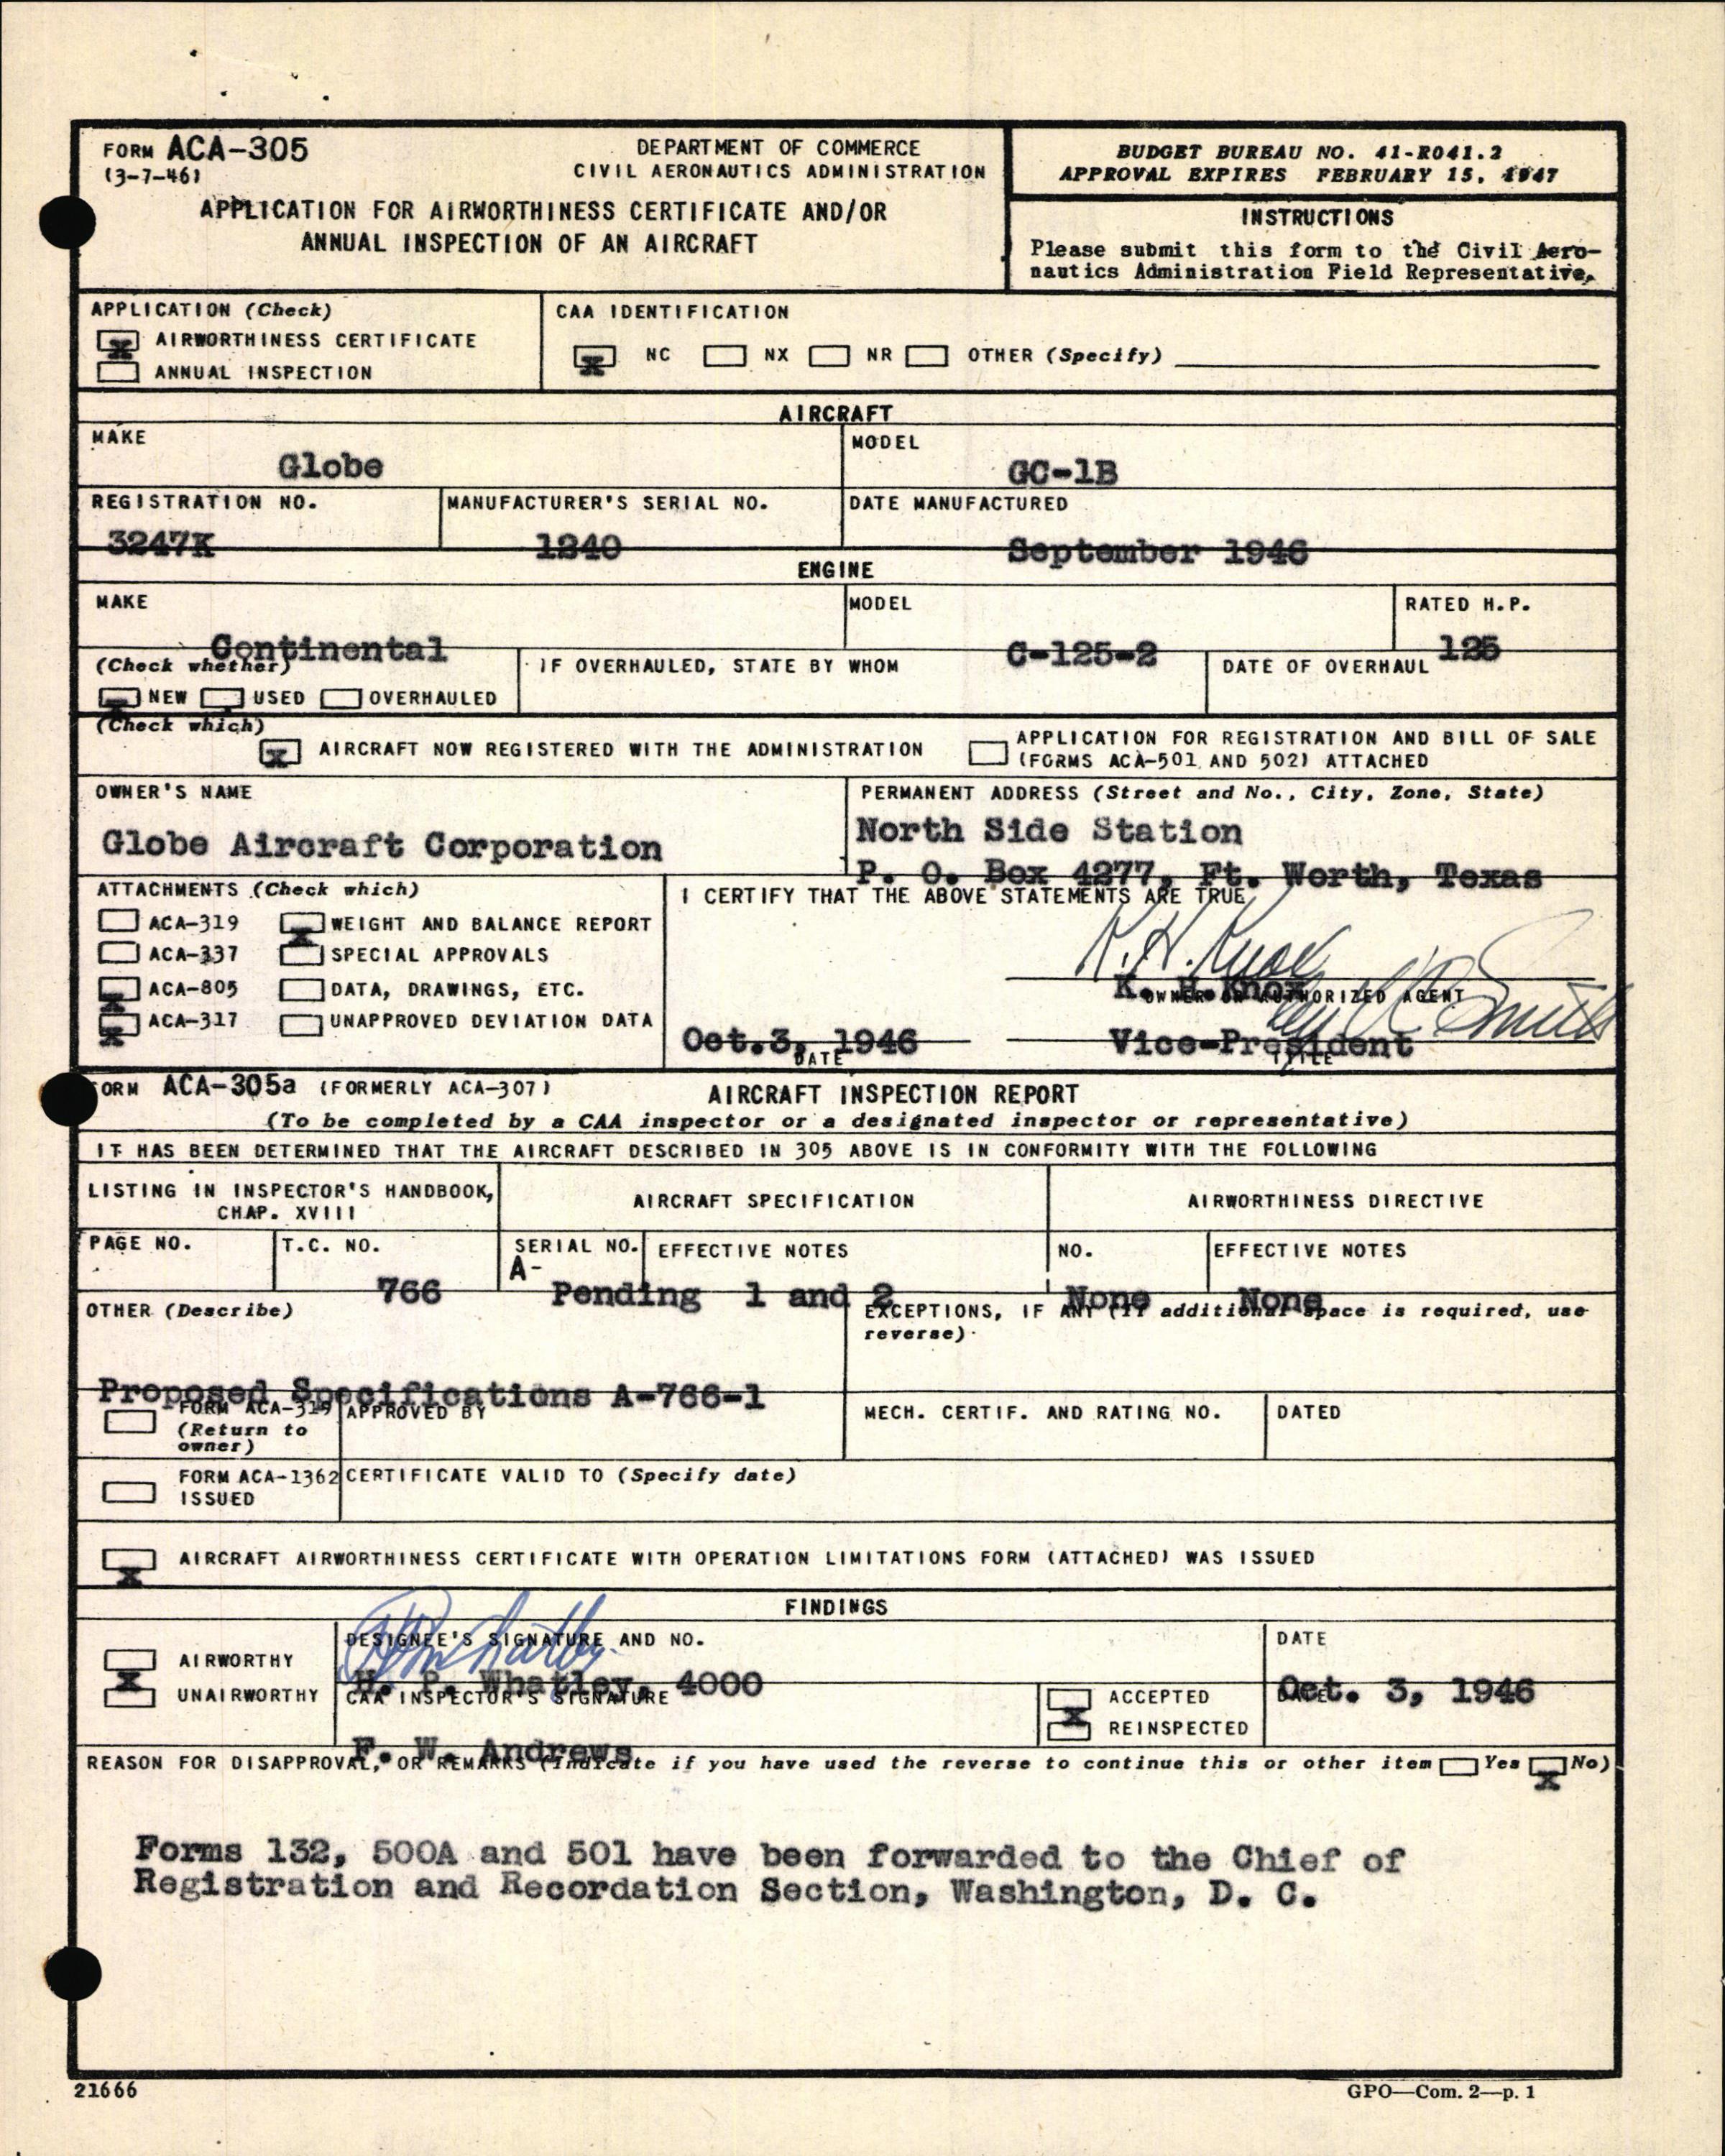 FORM ACA-305
(3-7-46)
DEPARTMENT OF COMMERCE
CIVIL AERONAUTICS ADMINISTRATION
APPLICATION FOR AIRWORTHINESS CERTIFICATE AND/OR
ANNUAL INSPECTION OF AN AIRCRAFT
BUDGET BUREAU NO. 41-R041.2
APPROVAL EXPIRES FEBRUARY 15, 1947
INSTRUCTIONS
Please submit this form to the Civil Aero-
nautics Administration Field Representative.
APPLICATION (Check)
X AIRWORTHINESS CERTIFICATE
ANNUAL INSPECTION
CAA IDENTIFICATION
X NC NX NR OTHER (Specify)
AIRCRAFT
MAKE
Globe
MODEL
GC-1B
REGISTRATION NO.
3247K
MANUFACTURER'S SERIAL NO.
1240
DATE MANUFACTURED
September 1946
ENGINE
MAKE
Continental
MODEL
C-125-2
RATED H.P.
125
(Check whether)
X NEW USED OVERHAULED
IF OVERHAULED, STATE BY WHOM
DATE OF OVERHAUL
(Check which)
X AIRCRAFT NOW REGISTERED WITH THE ADMINISTRATION
APPLICATION FOR REGISTRATION AND BILL OF SALE
(FORMS ACA-501 AND 502) ATTACHED
OWNER'S NAME
Globe Aircraft Corporation
PERMANENT ADDRESS (Street and No., City, Zone, State)
North Side Station
P. O. Box 4277, Ft. Worth, Texas
ATTACHMENTS (Check which)
ACA-319 X WEIGHT AND BALANCE REPORT
ACA-337 SPECIAL APPROVALS
X ACA-805 DATA, DRAWINGS, ETC.
X ACA-317 UNAPPROVED DEVIATION DATA
I CERTIFY THAT THE ABOVE STATEMENTS ARE TRUE
K. H. Knox
K. H. Knox
OWNER OR AUTHORIZED AGENT
Smith
Oct.3, 1946
DATE
Vice-President
TITLE
FORM ACA-305a (FORMERLY ACA-307)
AIRCRAFT INSPECTION REPORT
(To be completed by a CAA inspector or a designated inspector or representative)
IT HAS BEEN DETERMINED THAT THE AIRCRAFT DESCRIBED IN 305 ABOVE IS IN CONFORMITY WITH THE FOLLOWING
LISTING IN INSPECTOR'S HANDBOOK,
CHAP. XVIII
AIRCRAFT SPECIFICATION
AIRWORTHINESS DIRECTIVE
PAGE NO.
T.C. NO.
766
SERIAL NO.
A-
Pending
EFFECTIVE NOTES
1 and 2
NO.
None
EFFECTIVE NOTES
None
OTHER (Describe)
Proposed Specifications A-766-1
EXCEPTIONS, IF ANY (If additional space is required, use
reverse)
FORM ACA-319
(Return to
owner)
APPROVED BY
MECH. CERTIF. AND RATING NO.
DATED
FORM ACA-1362
ISSUED
CERTIFICATE VALID TO (Specify date)
X AIRCRAFT AIRWORTHINESS CERTIFICATE WITH OPERATION LIMITATIONS FORM (ATTACHED) WAS ISSUED
FINDINGS
X AIRWORTHY
UNAIRWORTHY
DESIGNEE'S SIGNATURE AND NO.
H. P. Whatley, 4000
DATE
Oct. 3, 1946
CAA INSPECTOR'S SIGNATURE
F. W. Andrews
X ACCEPTED
REINSPECTED
DATE
REASON FOR DISAPPROVAL, OR REMARKS (Indicate if you have used the reverse to continue this or other item Yes X No)
Forms 132, 500A and 501 have been forwarded to the Chief of
Registration and Recordation Section, Washington, D. C.
21666
GPO—Com. 2—p. 1